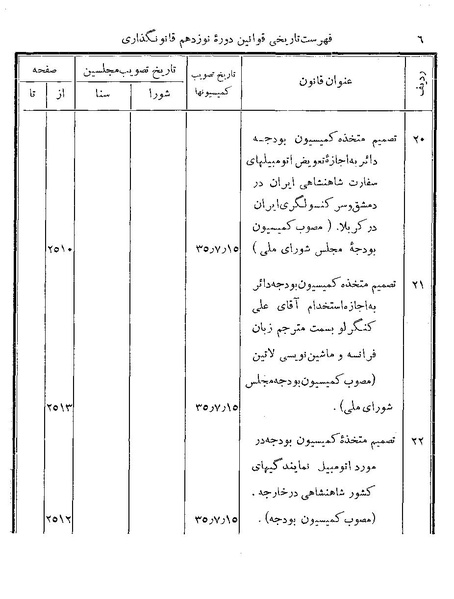 ۶ فهرست تاریخی قوانین دورهٔ نوزدهم قانونگذاری
ردیف عنوان قانون تاریخ تصویب کمیسیونها تاریخ تصویب مجلسین صفحه
شورا سنا از تا
۲۰ تصمیم متخذه کمیسیون بودجه
دائر به اجازهٔ تعویض اتومبیلهای
سفارت شاهنشاهی ایران در
دمشق و سر کنسولگری ایران
در کربلا. (مصوب کمیسیون
بودجهٔ مجلس شورای ملی) ۳۵٫۷٫۱۵ ۲۵۱۰
۲۱ تصمیم متخذه کمیسیون بودجه دائر
به اجازه استخدام آقای علی
کنگرلو بسمت مترجم زبان
فرانسه و ماشین نویسی لاتین
(مصوب کمیسیون بودجه مجلس
شورای ملی). ۳۵٫۷٫۱۵ ۲۵۱۳
۲۲ تصمیم متخذهٔ کمیسیون بودجه در
مورد اتومبیل نمایندگیهای
کشور شاهنشاهی در خارجه.
(مصوب کمیسیون بودجه). ۳۵٫۷٫۱۵ ۲۵۱۲